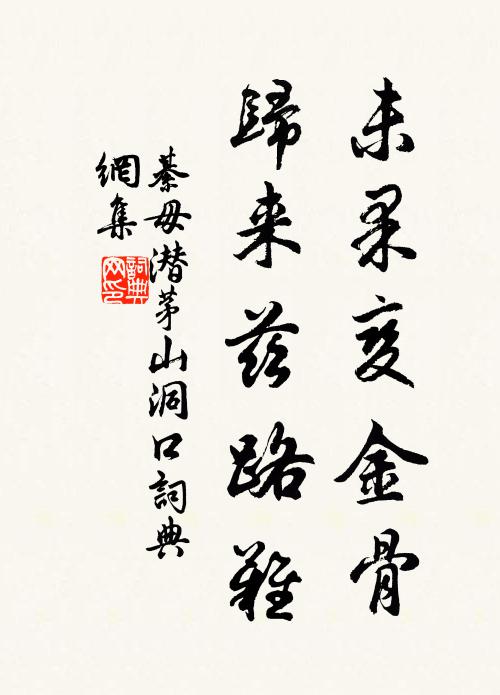 未果变金骨
歸来兹路難
綦毋潜茅山洞口詞典
網集
詞典
网印